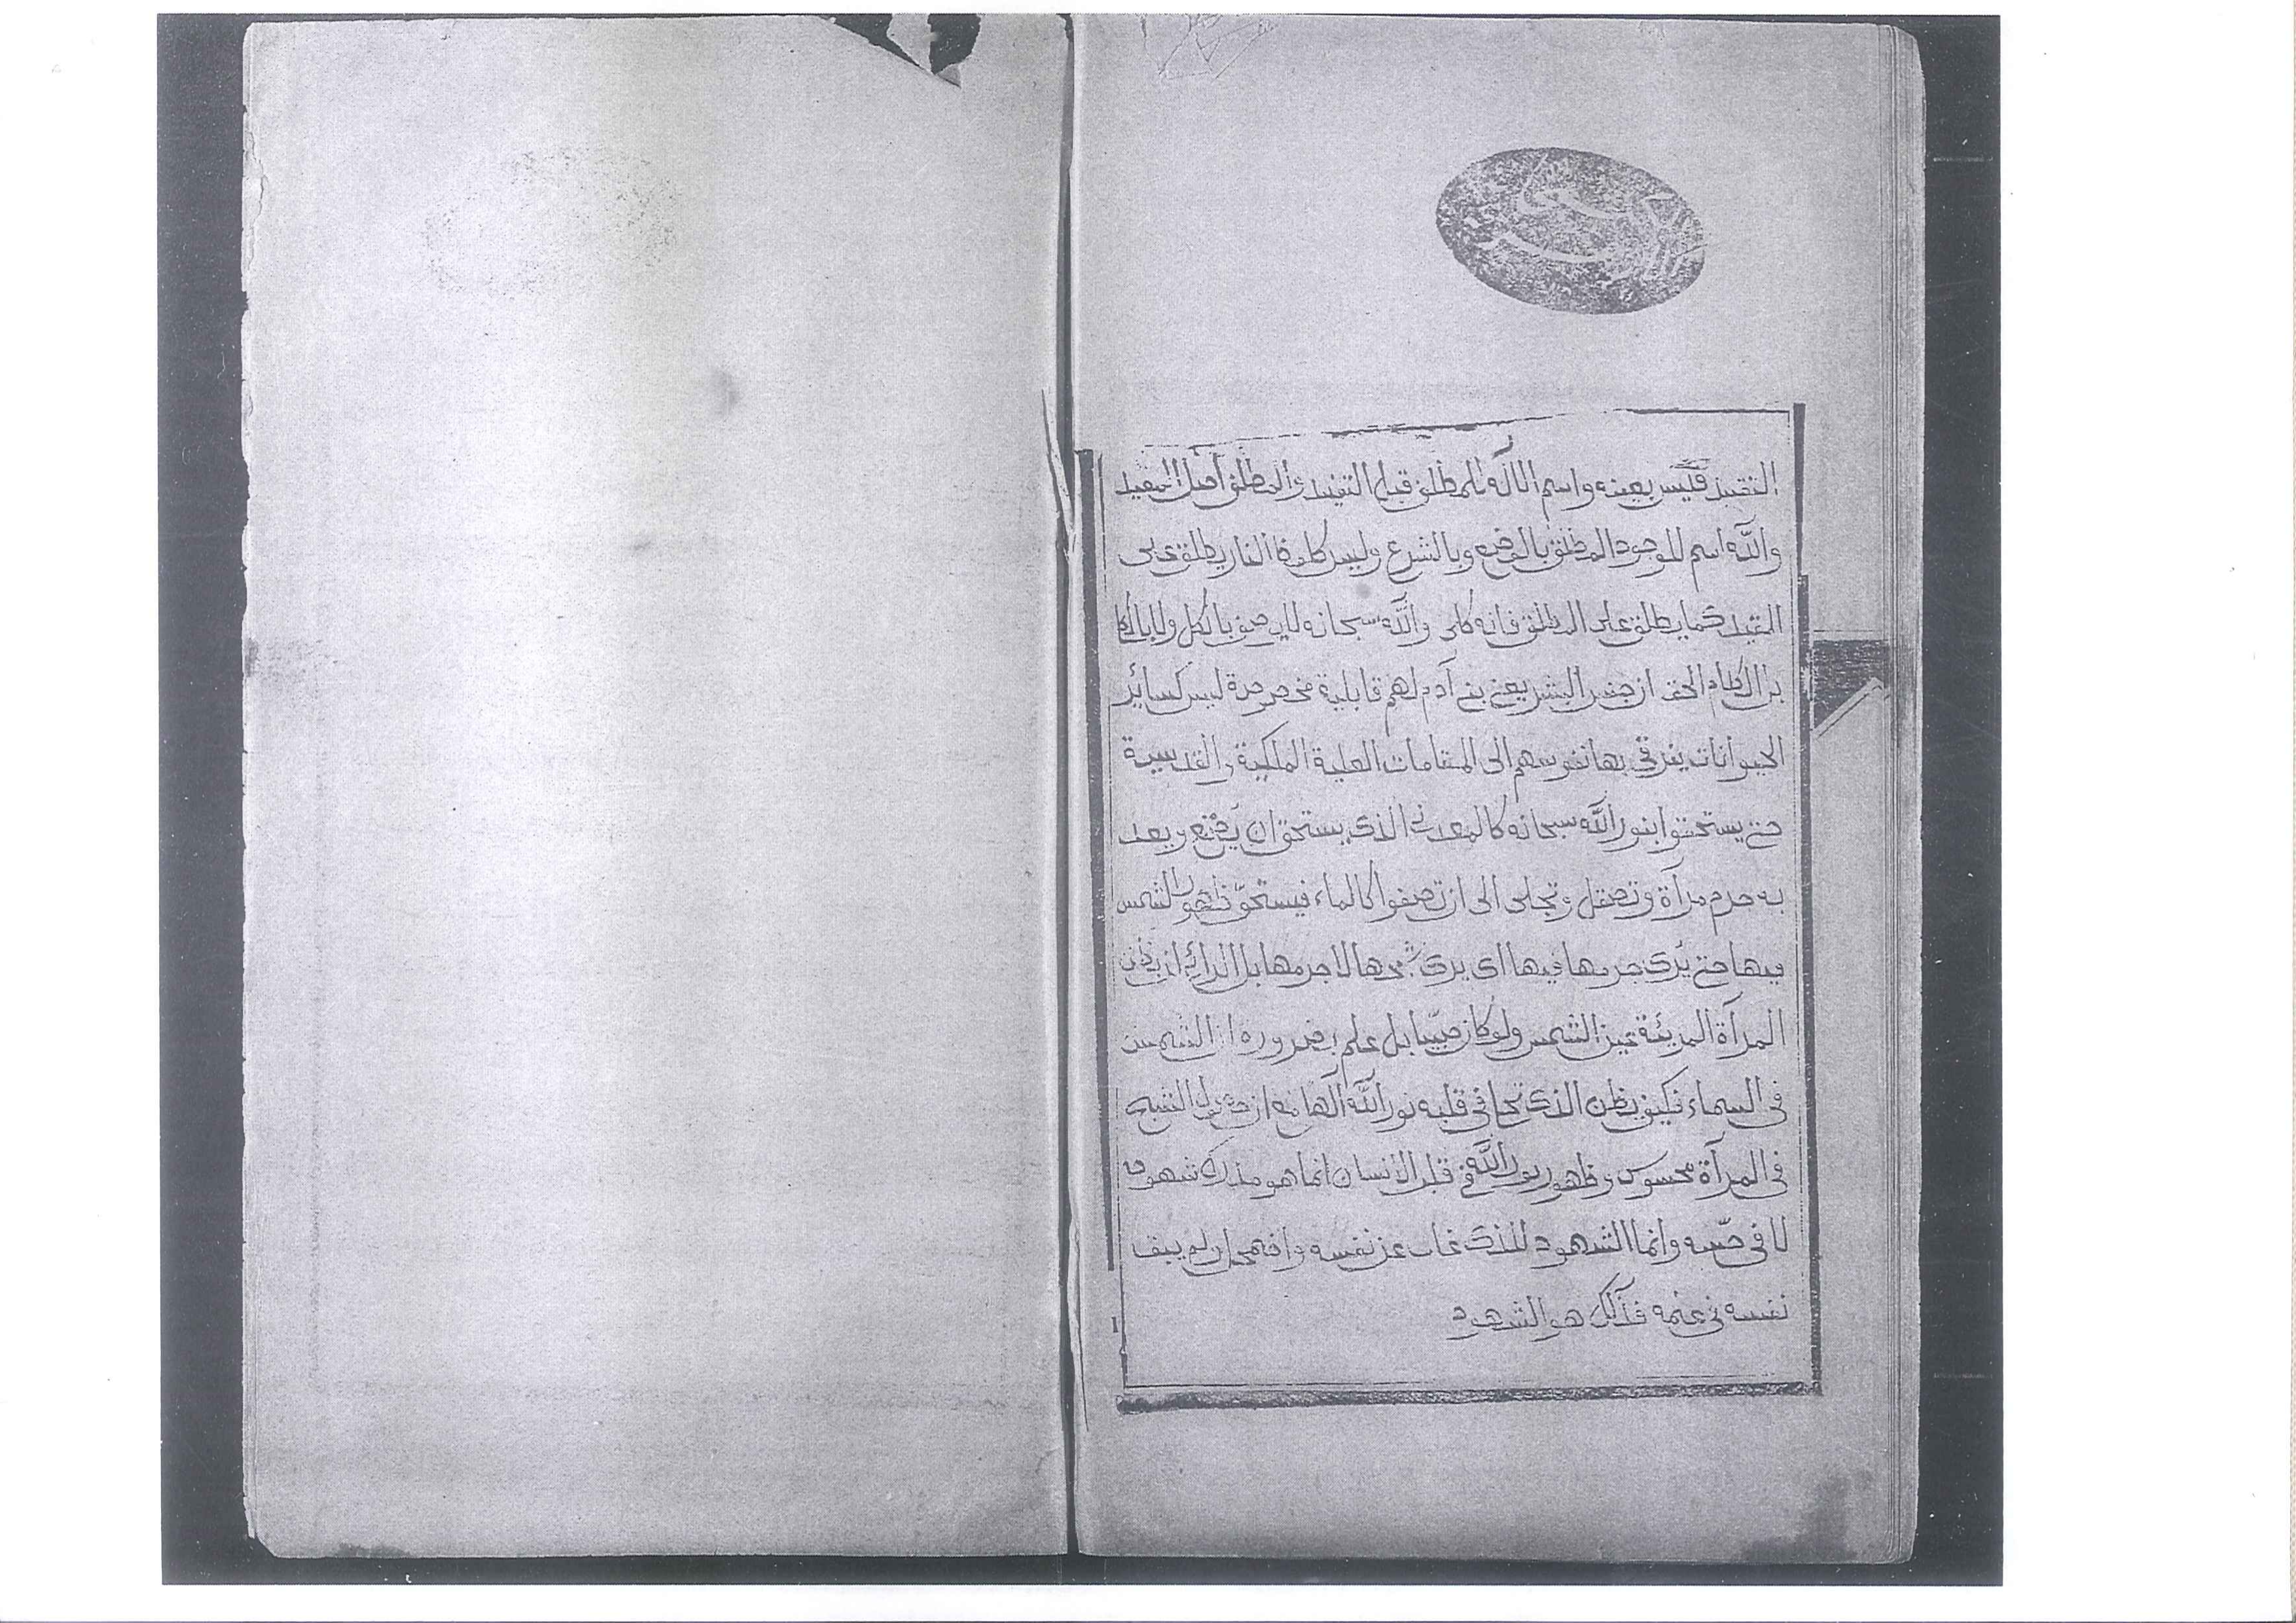 التقييد فليس بعينه واسم الاله للمطلق قبل التقييد والمطلق اصل المقيد
والله اسم للوجود المطلق بالوضع وبالشرع وليس كلفظة النار يطلق على
المقيد كما يطلق على المطلق فانه كلى والله سبحانه لا يوصف بالكل ولا بال
بل الكلام الحق ان جنس البشر يعنى بنى آدم لهم قابلية مخصوصة ليس كسائر
الحيوانات يترقى بها نفوسهم الى المقامات العلية الملكية والقدسية
حتى يستحقوا بنور الله سبحانه كالمعدن الذى يستحق ان يصنع وبعد
به جرم مرآة وتصقل وتجلى الى ان تصفوا كالماء فيستحق ظهور الشمس
فيها حتى يرى جرمها فيها اى يرى شبحها لا جرمها بل الرائى ان يظن
المرآة المرئية عين الشمس ولو كان صبيا بل علم بضروره ان الشمس
فى السماء فكيف يظن الذى تجلى فى قلبه نور الله الها مع ان
فى المرآة محسوس وظهور نور الله فى قلب الانسان انما هو مدرك شهوده
لا فى حسه وانما الشهود للذى غاب عن نفسه وافهم ان لم يبق
نفسه فى علمه فذلك هو الشهود